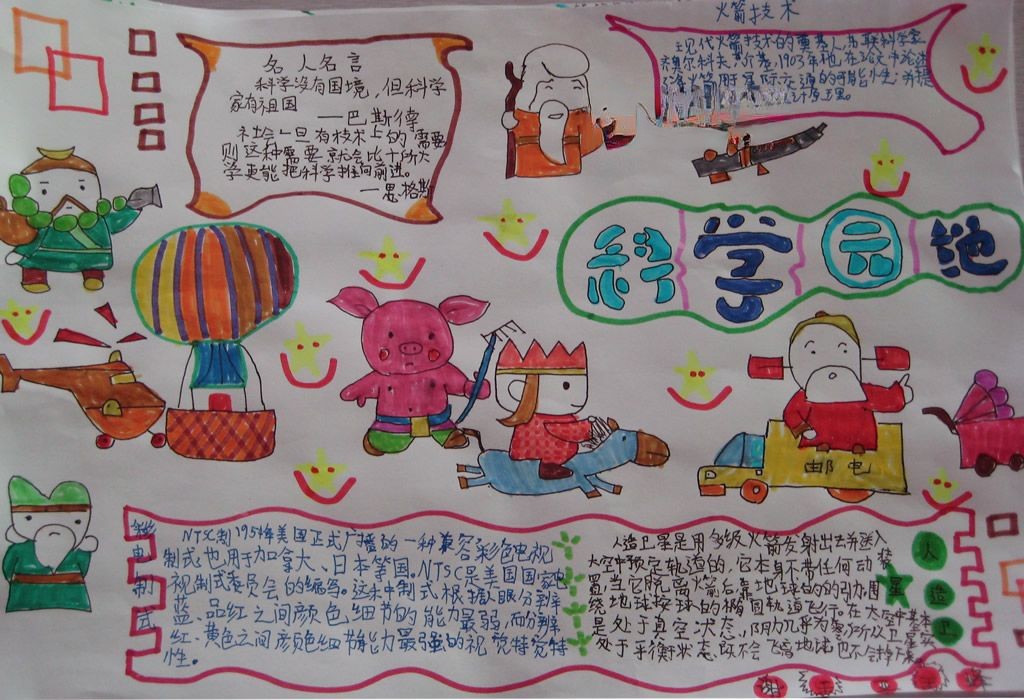 名人名言
科学没有国境,但科学
家有祖国
——巴斯德
社会一旦有技术上的需要
则这种需要就会比十所大
学更能把科学推向前进。
—恩格斯
火箭技术
现代火箭技术的奠基人苏联科学家
1903年他在论文中论述
火箭用于星际交通的可能性,并提
科学园地
邮电
彩电制式
NTSC制1954年美国正式广播的一种兼容彩色电视
制式也用于加拿大、日本等国。NTSC是美国国家电
视制式委员会的编写。这种制式根据人眼分辨
蓝、品红之间颜色细节的能力最弱,而分辨
红、黄色之间颜色细节能力最强的视觉特
性。
人造卫星
人造卫星是用多级火箭发射出去并送入
太空中预定轨道的,它本身不带任何动力装
置当它脱离火箭后,靠地球的引力围
绕地球按的椭圆轨道飞行。在太空中基本
是处于真空状态,阴力几乎为零所以卫星
处于平衡状态,既不会飞离地球也不会掉下来